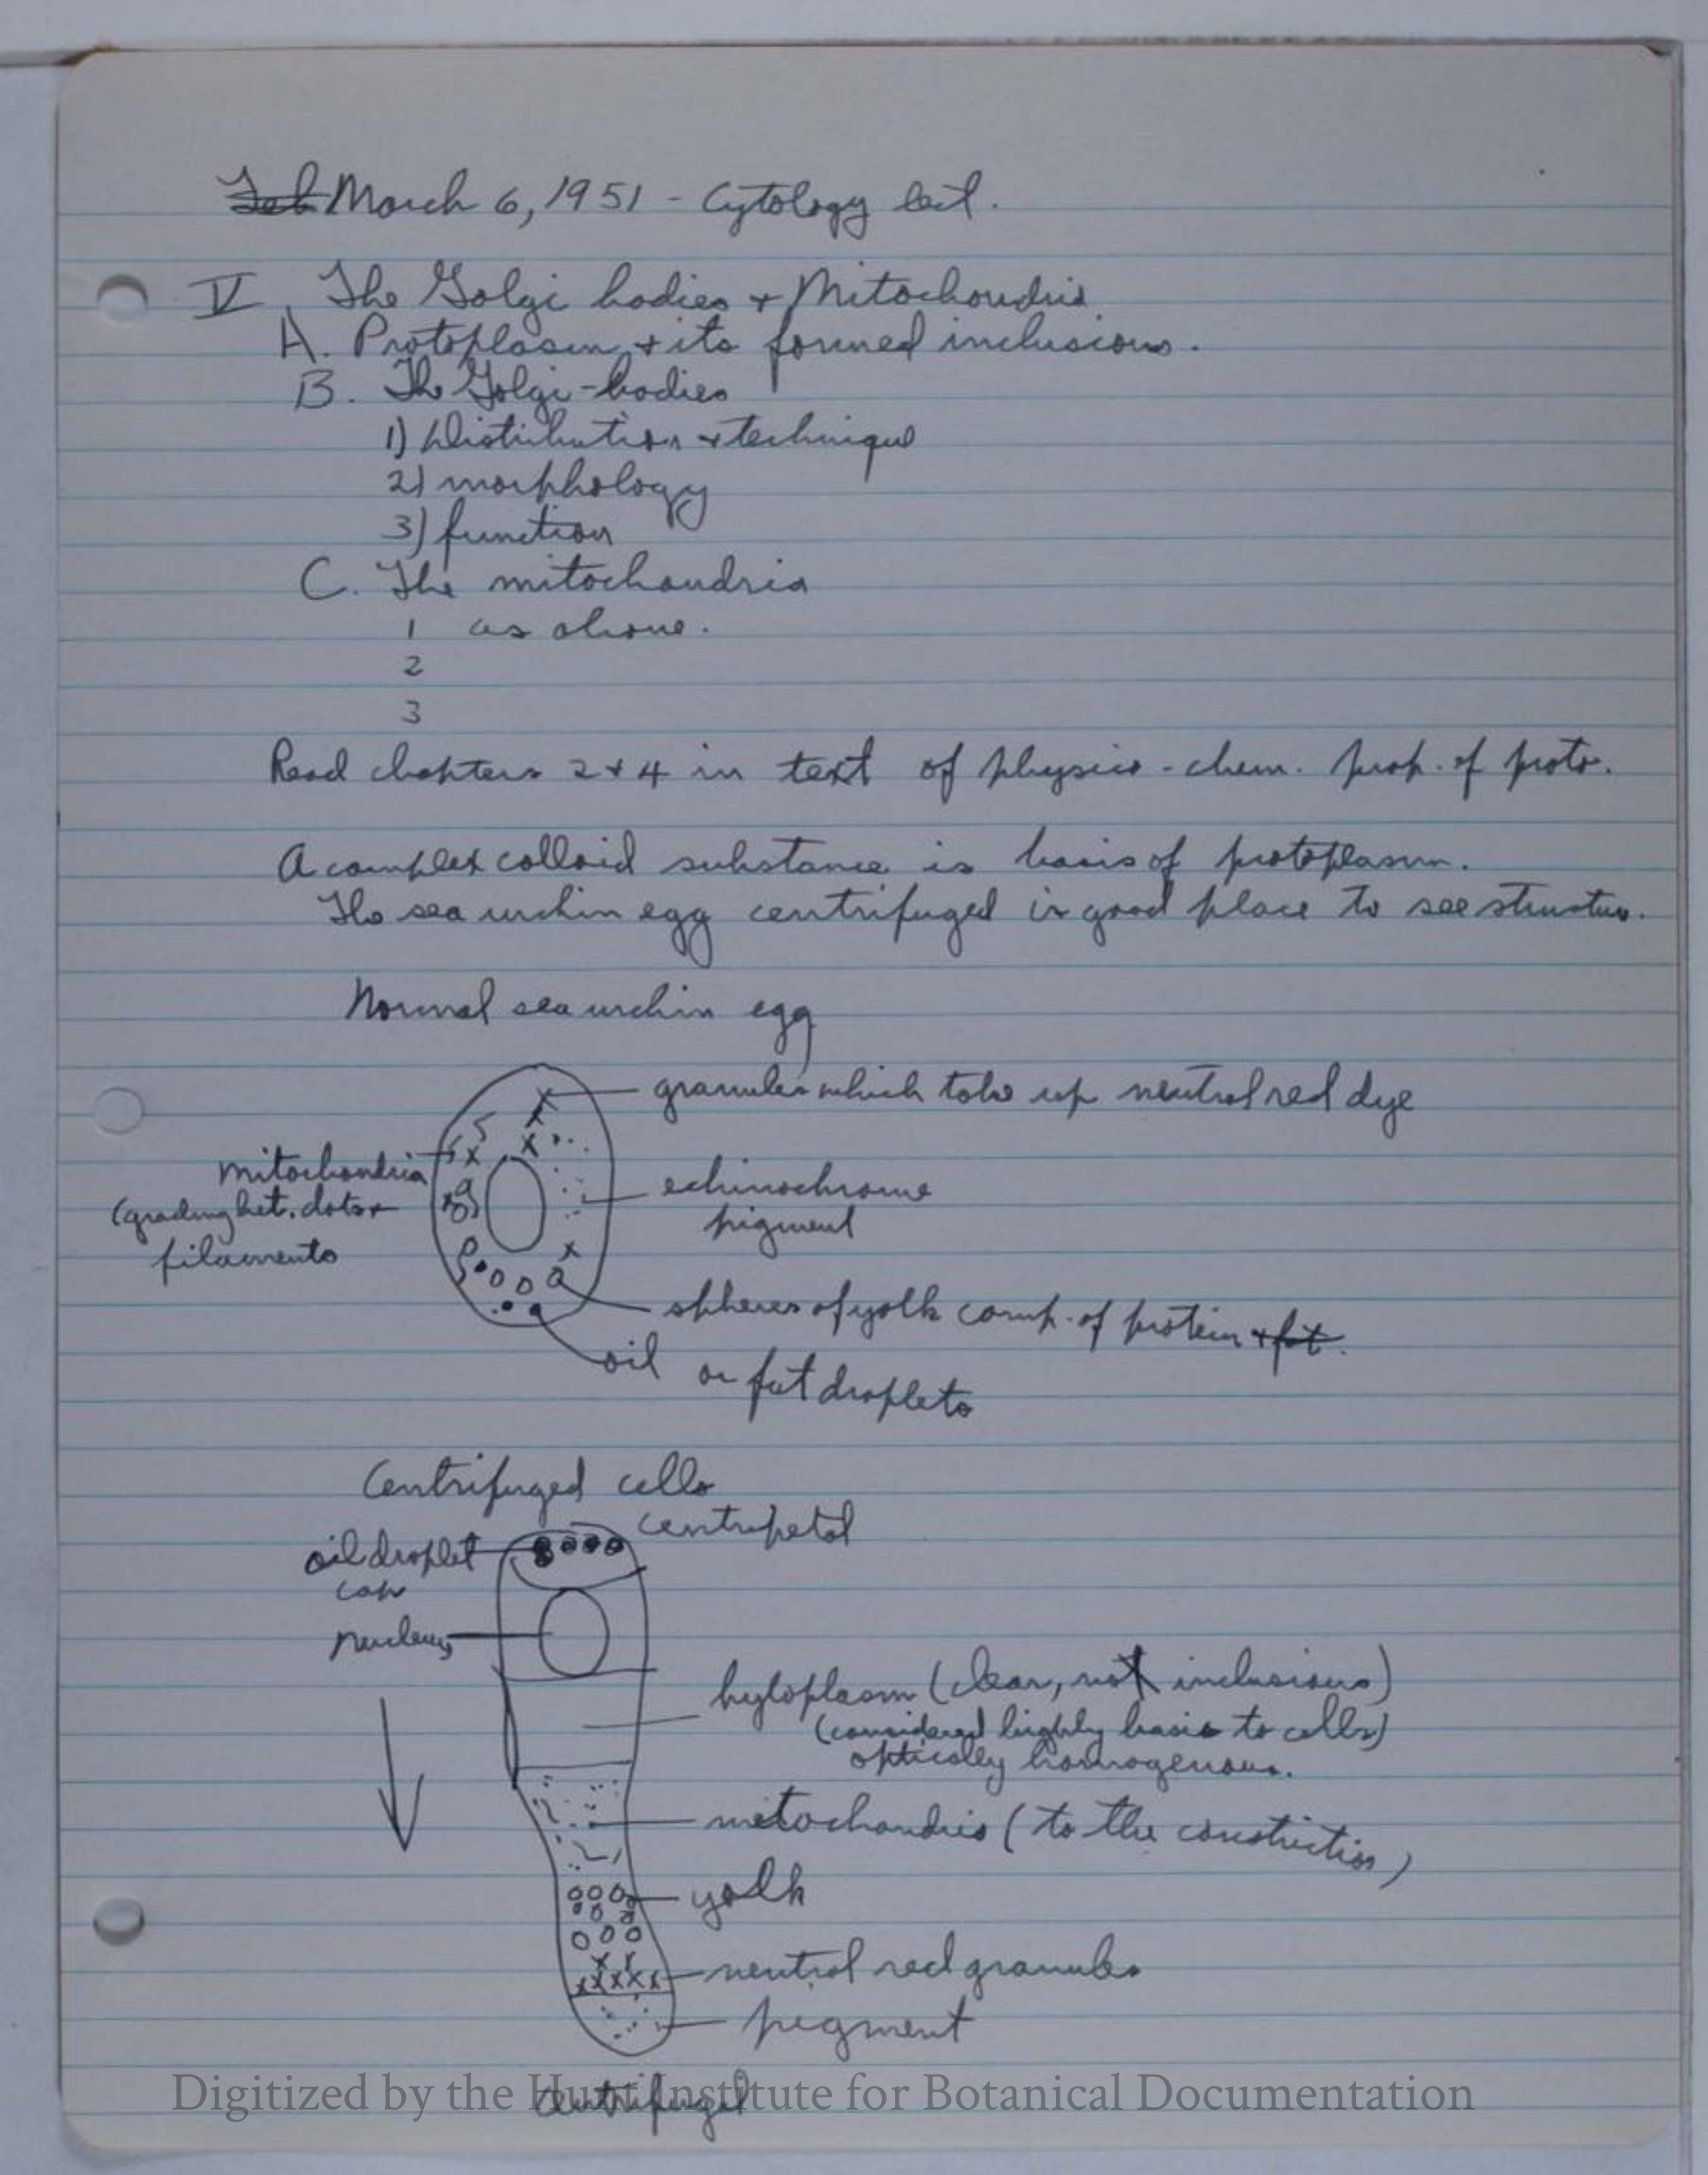 Feb March 6, 1951 - Cytology lect.
V. The Golgi bodies + Mitochondria
A. Protoplasm + its formed inclusions.
B. The Golgi-bodies
1) Distribution + technique
2) morphology
3) function
C. The mitochondria
1 as above.
2
3
Read chapters 2 + 4 in text of physico-chem. prop. of proto.
A complex colloid substance is basis of protoplasm.
The sea urchin egg centrifuged is good place to see structure.
Normal sea urchin egg
granules which take up neutral red dye
mitochondria
(grading bet. dots +
filaments
echinochrome
pigment
spheres of yolk comp. of protein + fat.
oil or fat droplets
Centrifuged cells
centripetal
oil droplet
cap
nucleus
hyloplasm (clear, not inclusions)
(considered highly basic to cells)
optically homogenous.
mitochondria (to the constriction)
yolk
neutral red granules
pigment
centrifugal
Digitized by the Hunt Institute for Botanical Documentation